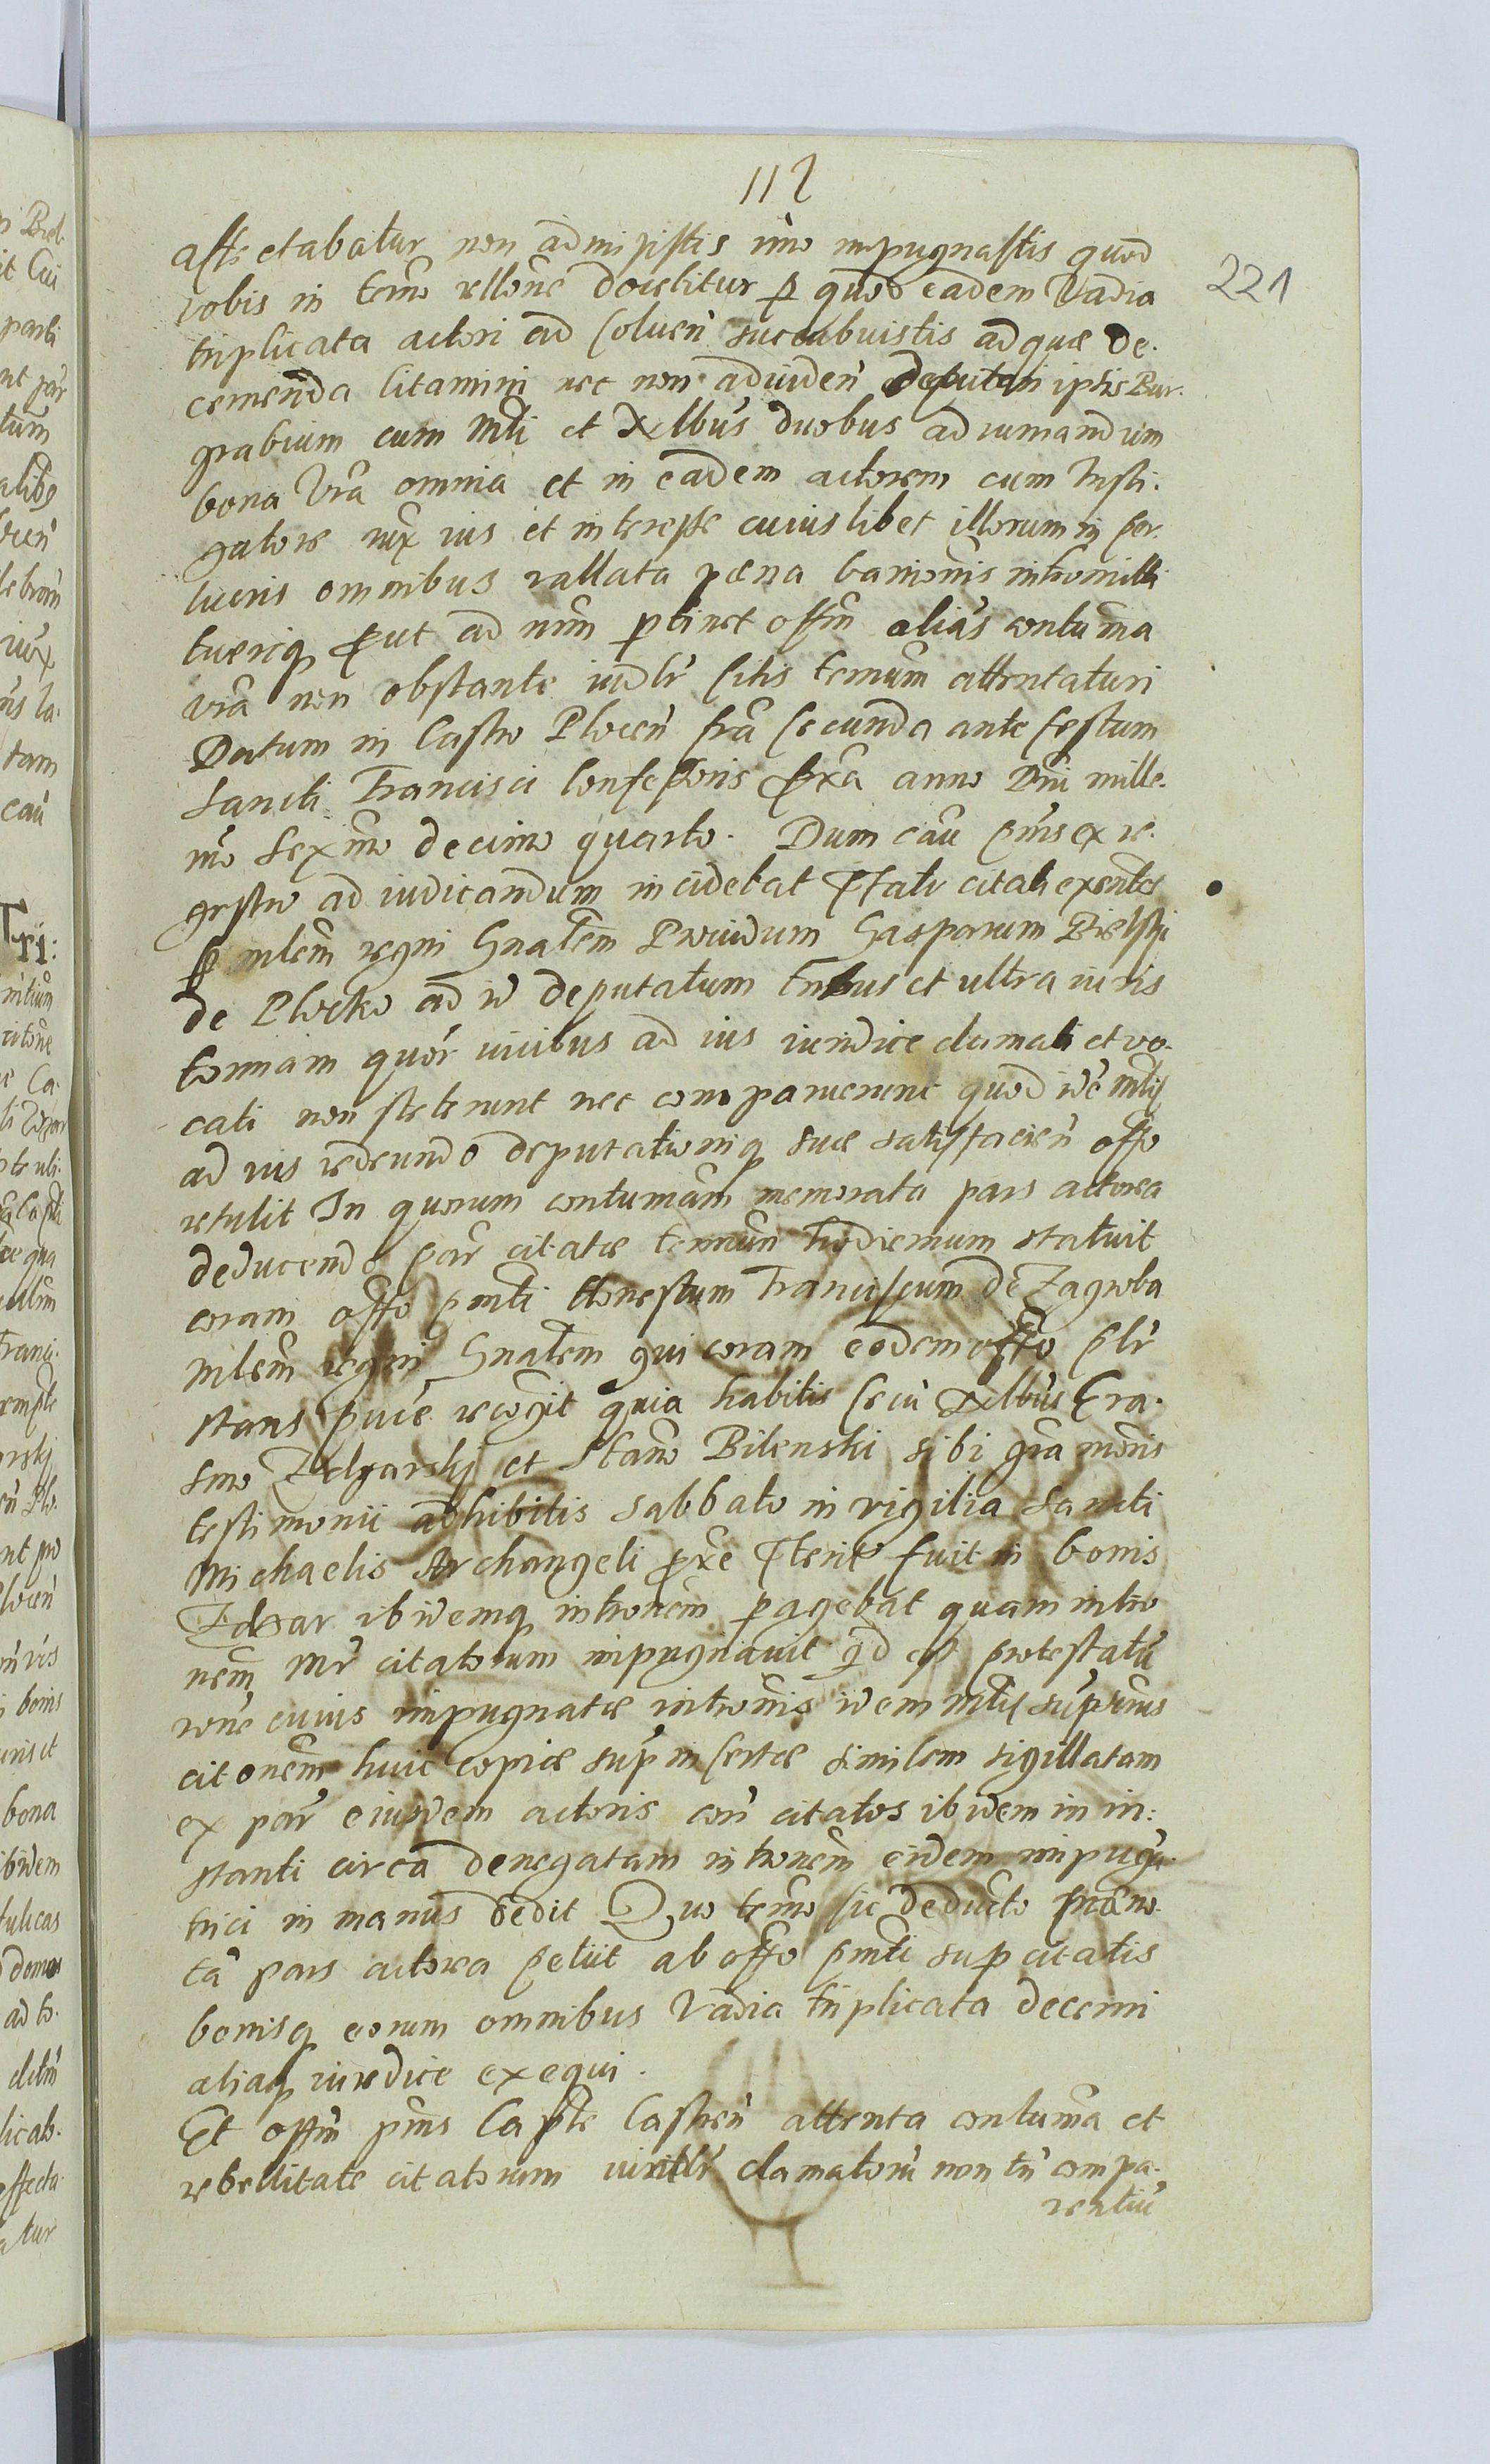 112
221
affectabatur non admisistis imo impugnastis quod
vobis in termo rllone docebitur p quod eadem Vadia
triplicata actori ad soluen succubuistis ad quæ de.
cernenda citamini nec non ad viden deputari ipsis Bur.
grabium cum Mti et Nlbus duobus ad rumandum
bona Vra omnia et in eadem actorem cum Insti.
gatore iux ius et interesse cuiuslibet illorum in
lucris omnibus vallata pœna banionis intromitti
tueriq prout ad nrm ptinet offm alias contuma
vra non obstante iudr sitis termum attentaturi
Datum in Castro Plocen fra secunda ante festum
Sancti Francisci Confessoris pxa anno Dni mille.
mo Sexmo decimo quarto. Dum cau pns ex re.
gestro ad iudicandum incidebat Pfati citati exntes
p mlem regni Gnalem Providum Gasparum Bielski
de Plocko ad id deputatum tribus et ultra iuris
torniam quor vicibus ad ius iuridice clamati et vo.
cati non steterunt nec comparuerunt quod idē mlis
ad ius redeundo deputationiq suæ satisfacien offo
retulit In quorum contumam memorata pars actorea
deducendo par citatæ termum hodiernum statuit
coram offo pnti Honestum Franciscum de Zagroba
mlem regni Gnalem qui coram eodem offo plr
stans puce recogit quia habitis secu Nlbus Era.
smo Zdzarski et Stano Bilenski sibi gra moris
testimonii adhibitis Sabbato in vigilia Sancti
Michaelis Archangeli pxe Pterite fuit in bonis
Zdzar ibidemq intronem pagebat quam intro
nem Mr citatorum impugnavit qd est protestatū
rone cuius impugnatæ intromis idem mlis suprius
citonem huic copiæ sup insertæ similem sigillatam
ex par eiusdem actoris con citatos ibidem in in:
stanti circa denegatam intronem eidem impugn.
trici in manus dedit Quo termo sic deducto prano.
ta pars actorea petiit ab offo pnti sup citatis
bonisq eorum omnibus Vadia triplicata decerni
aliaq iuredice exequi.
Et offm pns Capte Castren attenta contuma et
rebellitate citatorum clamatoru non tn compa.
rentiu